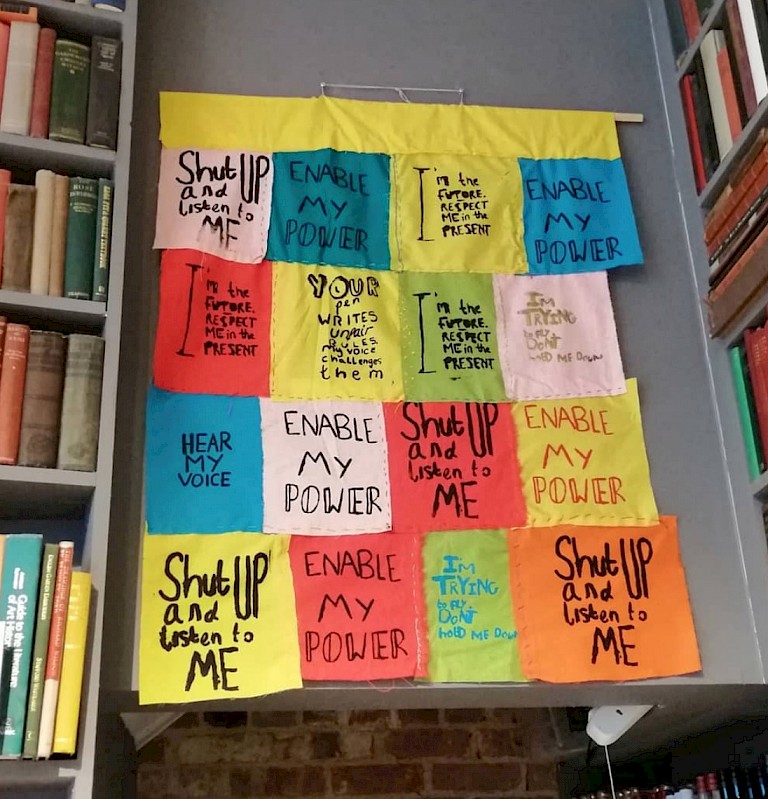 Shut UP
and
listen to
ME
ENABLE
MY
POWER
I'm the
FUTURE.
RESPECT
ME in the
PRESENT
ENABLE
MY
POWER
I'm the
FUTURE.
RESPECT
ME in the
PRESENT
YOUR
pen
WRITES
Unfair
RULES.
My VOICE
challenges
them
I'm the
FUTURE.
RESPECT
ME in the
PRESENT
I'm
TRYING
to fly.
DONT
hold ME DOWN
HEAR
MY
VOICE
ENABLE
MY
POWER
Shut UP
and
listen to
ME
ENABLE
MY
POWER
Shut UP
and
listen to
ME
ENABLE
MY
POWER
I'm
TRYING
to fly.
DONT
hold ME DOWN
Shut UP
and
listen to
ME
Guide to the Literature
of Art History